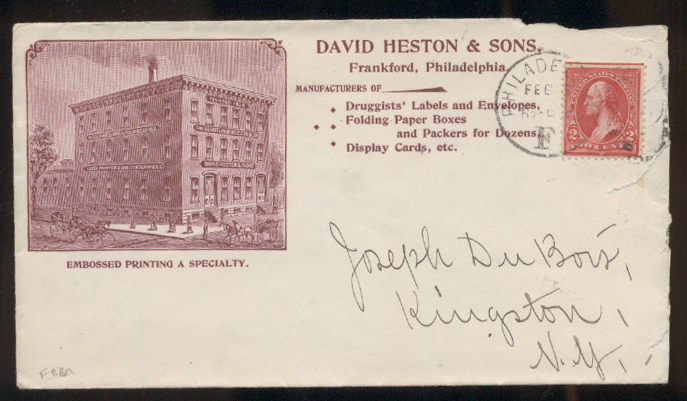 DAVID HESTON & SONS,
Frankford, Philadelphia.
MANUFACTURERS OF
Druggists' Labels and Envelopes,
Folding Paper Boxes
and Packers for Dozens,
Display Cards, etc.
PHILADE
FEB
F
2 2
DAVID HESTON & SONS
EMBOSSED PRINTING A SPECIALTY.
Joseph DuBois,
Kingston,
N.Y.,